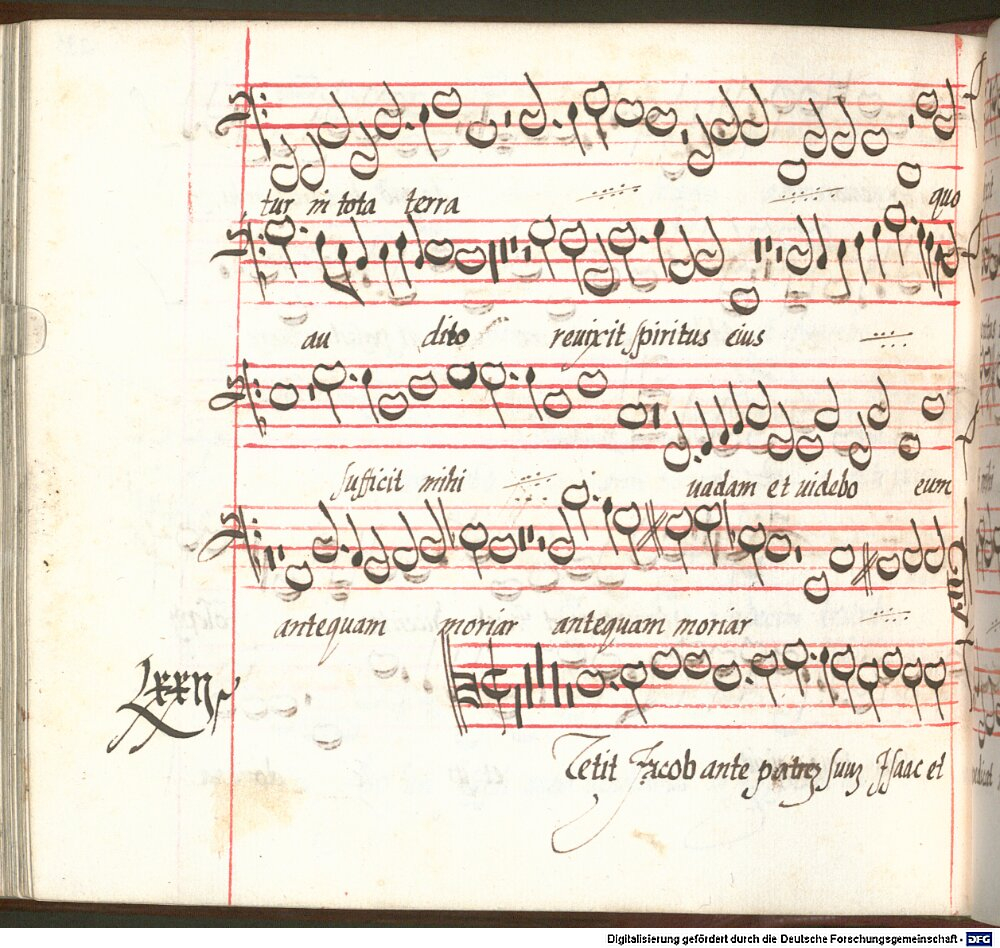 tur in tota terra quo
au dito reuixit spiritus eius
sufficit mihi uadam et uidebo eum
antequam moriar antequam moriar
Lxxij
Tetit Jacob ante patrez suuz Jsaac et
Digitalisierung gefördert durch die Deutsche Forschungsgemeinschaft - DFG